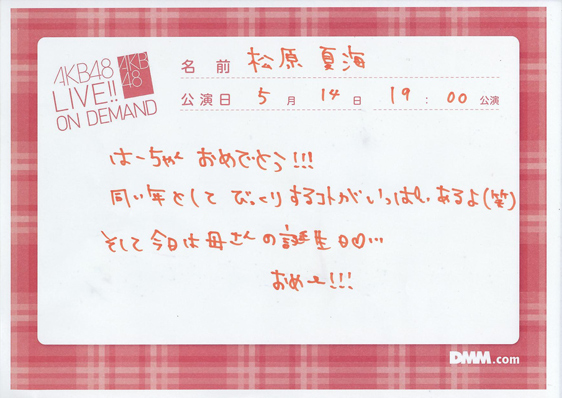 AKB48
LIVE!!
ON DEMAND
AKB
48
名前 松原夏海
公演日 5月14日 19:00公演
はーちゃん おめでとう!!!
同い年として びっくりするコトがいっぱい あるよ(笑)
そして今日は母さんの誕生日♡…
おめー!!!
DMM.com